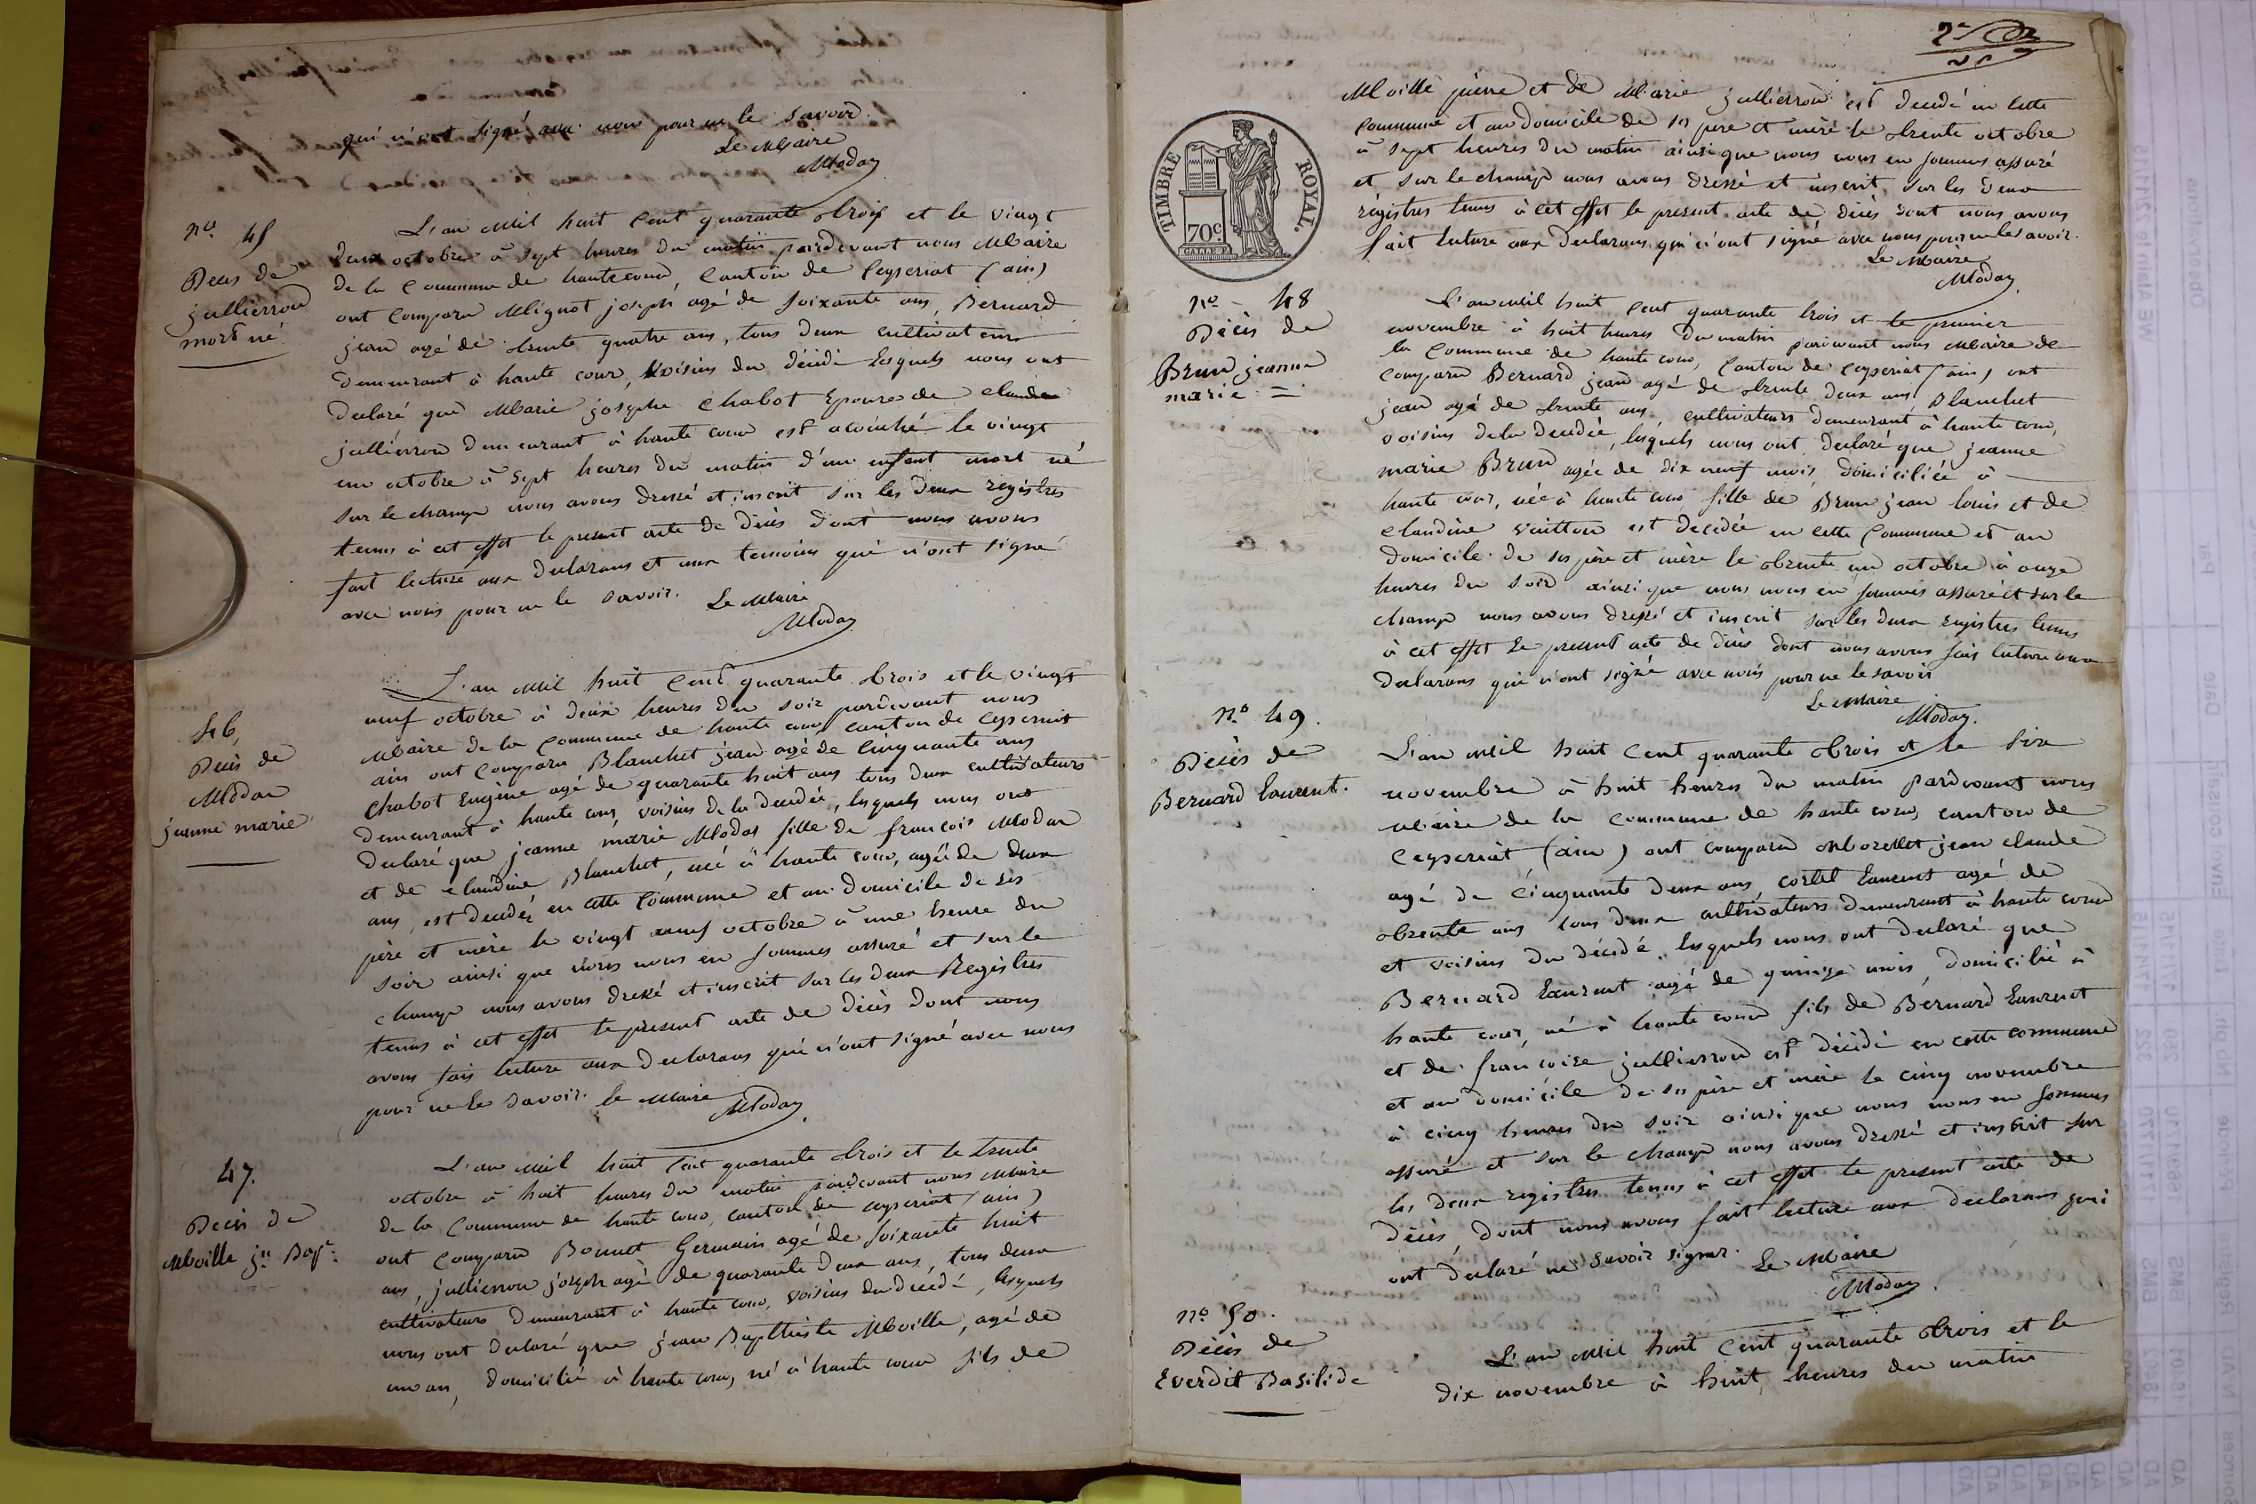 qui n'ont signé avec nous pour ne le savoir.
Le Maire
Moday
no 45
Deces de
jullierron
mort né
L'an Mil huit Cent quarante trois et le vingt
deux octobre à sept heures du matin pardevant nous Maire
de la Commune de hautecour, Canton de Ceyseriat (ain)
ont Comparu Mignot joseph agé de soixante ans, Bernard
jean agé de trente quatre ans, tous deux cultivateurs
demeurant à haute cour, voisins du décédé lesquels nous ont
declaré que Marie josephe Chabot Epouse de claude
jullierron demeurant à haute cour est acouché le vingt
un octobre à sept heures du matin d'un enfant mort né
sur le champ nous avons dressé et inscrit sur les deux registres
tenus à cet effet le present acte de décès dont nous avons
fait lecture aux declarans et aux temoins qui n'ont signé
avec nous pour ne le savoir. Le Maire
Moday
46,
Decès de
Modas
jeanne marie
L'an Mil huit Cent quarante trois et le vingt
neuf octobre à deux heures du soir pardevant nous
Maire de la Commune de haute cour canton de Ceyseriat
ain ont Comparu Blanchet jean agé de Cinquante ans
Chabot Eugène agé de quarante huit ans tous deux cultivateurs
demeurant à haute cour, voisins de la decedée, lesquels nous ont
declaré que jeanne marie Modas fille de françois Modas
et de claudine Blanchet, née à haute cour, agée de deux
ans, est decedée en cette Commune et au domicile de ses
père et mère le vingt neuf octobre à une heure du
soir ainsi que nous nous en sommes assuré et sur le
champ nous avons dressé et inscrit sur les deux Registres
tenus à cet effet le present acte de décès dont nous
avons fais lecture aux declarans qui n'ont signé avec nous
pour ne le savoir. le Maire
Moday
47.
Decès de
Moille jn Bapt.
L'an Mil huit Cent quarante trois et le trente
octobre à huit heures du matin pardevant nous Maire
de la Commune de haute cour, canton de ceyseriat (ain)
ont Comparu Bonnet Germain agé de soixante huit
ans, jullierron joseph agé de quarante deux ans, tous deux
cultivateurs demeurant à haute cour, voisins du decedé, lesquels
nous ont declaré que jean Baptiste Moille, agé de
un an, domicilié à haute cour, né à haute cour fils de
2e
Moille pierre et de Marie jullierron est decedé en cette
Commune et au domicile de ses pere et mère le trente octobre
à sept heures du matin ainsi que nous nous en sommes assuré
et, sur le champ nous avons dressé et inscrit sur les deux
régistres tenus à cet effet le present acte de décès dont nous avons
fait lecture aux declarans qui n'ont signé avec nous pour ne le savoir.
Le Maire
Moday
TIMBRE ROYAL.
70c
no - 48
Décès de
Brun jeanne
marie =
L'an mil huit Cent quarante trois et le premier
novembre à huit heures du matin pardevant nous Maire de
la Commune de haute cour, Canton de ceyseriat (ain) ont
comparu Bernard jean agé de trente deux ans Blanchet
jean agé de trente ans cultivateurs demeurant à haute cour,
voisins de la decedée, lesquels nous ont declaré que jeanne
marie Brun agée de dix neuf mois, domiciliée à
haute cour, née à haute cour fille de Brun jean louis et de
claudine vuitton est decedée en cette Commune et au
domicile de ses père et mère le trente un octobre à onze
heures du soir ainsi que nous nous en sommes assuré et sur le
champ nous avons dressé et inscrit sur les deux registres tenus
à cet effet le present acte de décès dont nous avons fais lecture aux
declarans qui n'ont signé avec nous pour ne le savoir
Le Maire
Moday.
No 49.
Décès de
Bernard Laurent.
L'an mil huit Cent quarante trois et le six
novembre à huit heures du matin pardevant nous
Maire de la Commune de haute cour, canton de
Ceyseriat (ain) ont comparu Morellet jean claude
agé de Cinquante deux ans, cortet Laurent agé de
trente ans tous deux cultivateurs demeurant à haute cour
et voisins du décédé. lesquels nous ont declaré que
Bernard Laurent agé de quinze mois, domicilié à
haute cour, né à haute cour fils de Bernard Laurent
et de françoise jullierron est décédé en cette commune
et au domicile de ses père et mère le cinq novembre
à cinq heures du soir ainsi que nous nous en sommes
assuré et sur le champ nous avons dressé et inscrit sur
les deux registres tenus à cet effet le present acte de
décès, dont nous avons fait lecture aux declarans qui
ont declaré ne savoir signer. Le Maire
Moday
No 50.
Décès de
Everdit Basilide
L'an Mil huit Cent quarante trois et le
dix novembre à huit heures du matin